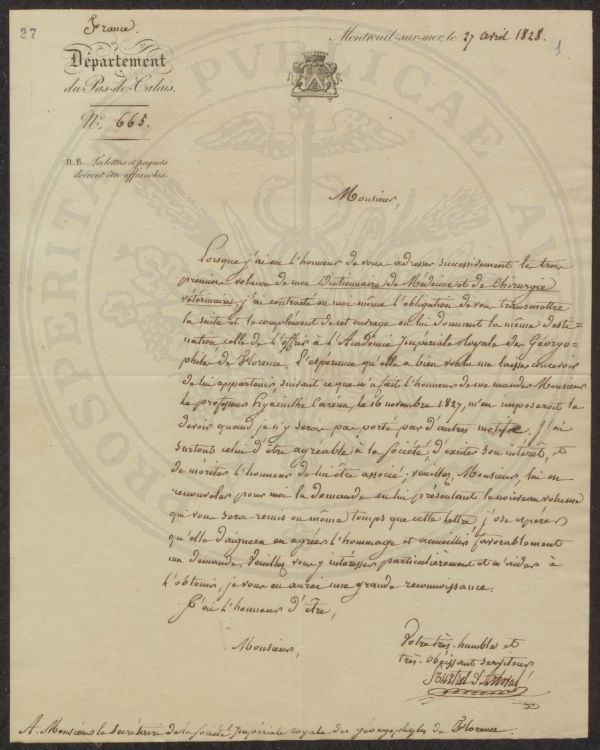 27
France.
Montreuil-sur-mer, le 27 avril 1828.
1
Département
du Pas-de-Calais.
N.º 665.
N.B. Les lettres et paquets
doivent être affranchis.
Monsieur,
Lorsque j'ai eu l'honneur de vous adresser successivement les trois
premiers volumes de mon Dictionnaire de Médecine et de Chirurgie
vétérinaires, j'ai contracté en moi même l'obligation de vous transmettre
la suite et le complément de cet ouvrage en lui donnant la même desti-
nation celle de l'offrir à l'Académie Impériale Royale des Géorgo-
philes de Florence. L'espérance qu'elle a bien voulu me laisser concevoir
de lui appartenir, suivant ce que m'a fait l'honneur de me mander Monsieur
le professeur Hyacinthe Carena, le 16 novembre 1827, m'en imposeroit le
devoir quand je n'y serois pas porté par d'autres motifs. J'ai
surtout celui d'être agréable à la Société, d'exciter son intérêt, et
de mériter l'honneur de lui être associé; veuillez, Monsieur, lui en
renouveler pour moi la demande en lui présentant le nouveau volume
qui vous sera remis en même temps que cette lettre; j'ose espérer
qu'elle daignera en agréer l'hommage et accueillir favorablement
ma demande. Veuillez vous y intéresser particulièrement et m'aider à
l'obtenir, je vous en aurai une grande reconnaissance.
J'ai l'honneur d'être,
Monsieur,
Votre très-humble et
très-obéissant serviteur
Hurtrel d'Arboval
A Monsieur le Secrétaire de la Société Impériale royale des géorgophiles de Florence.